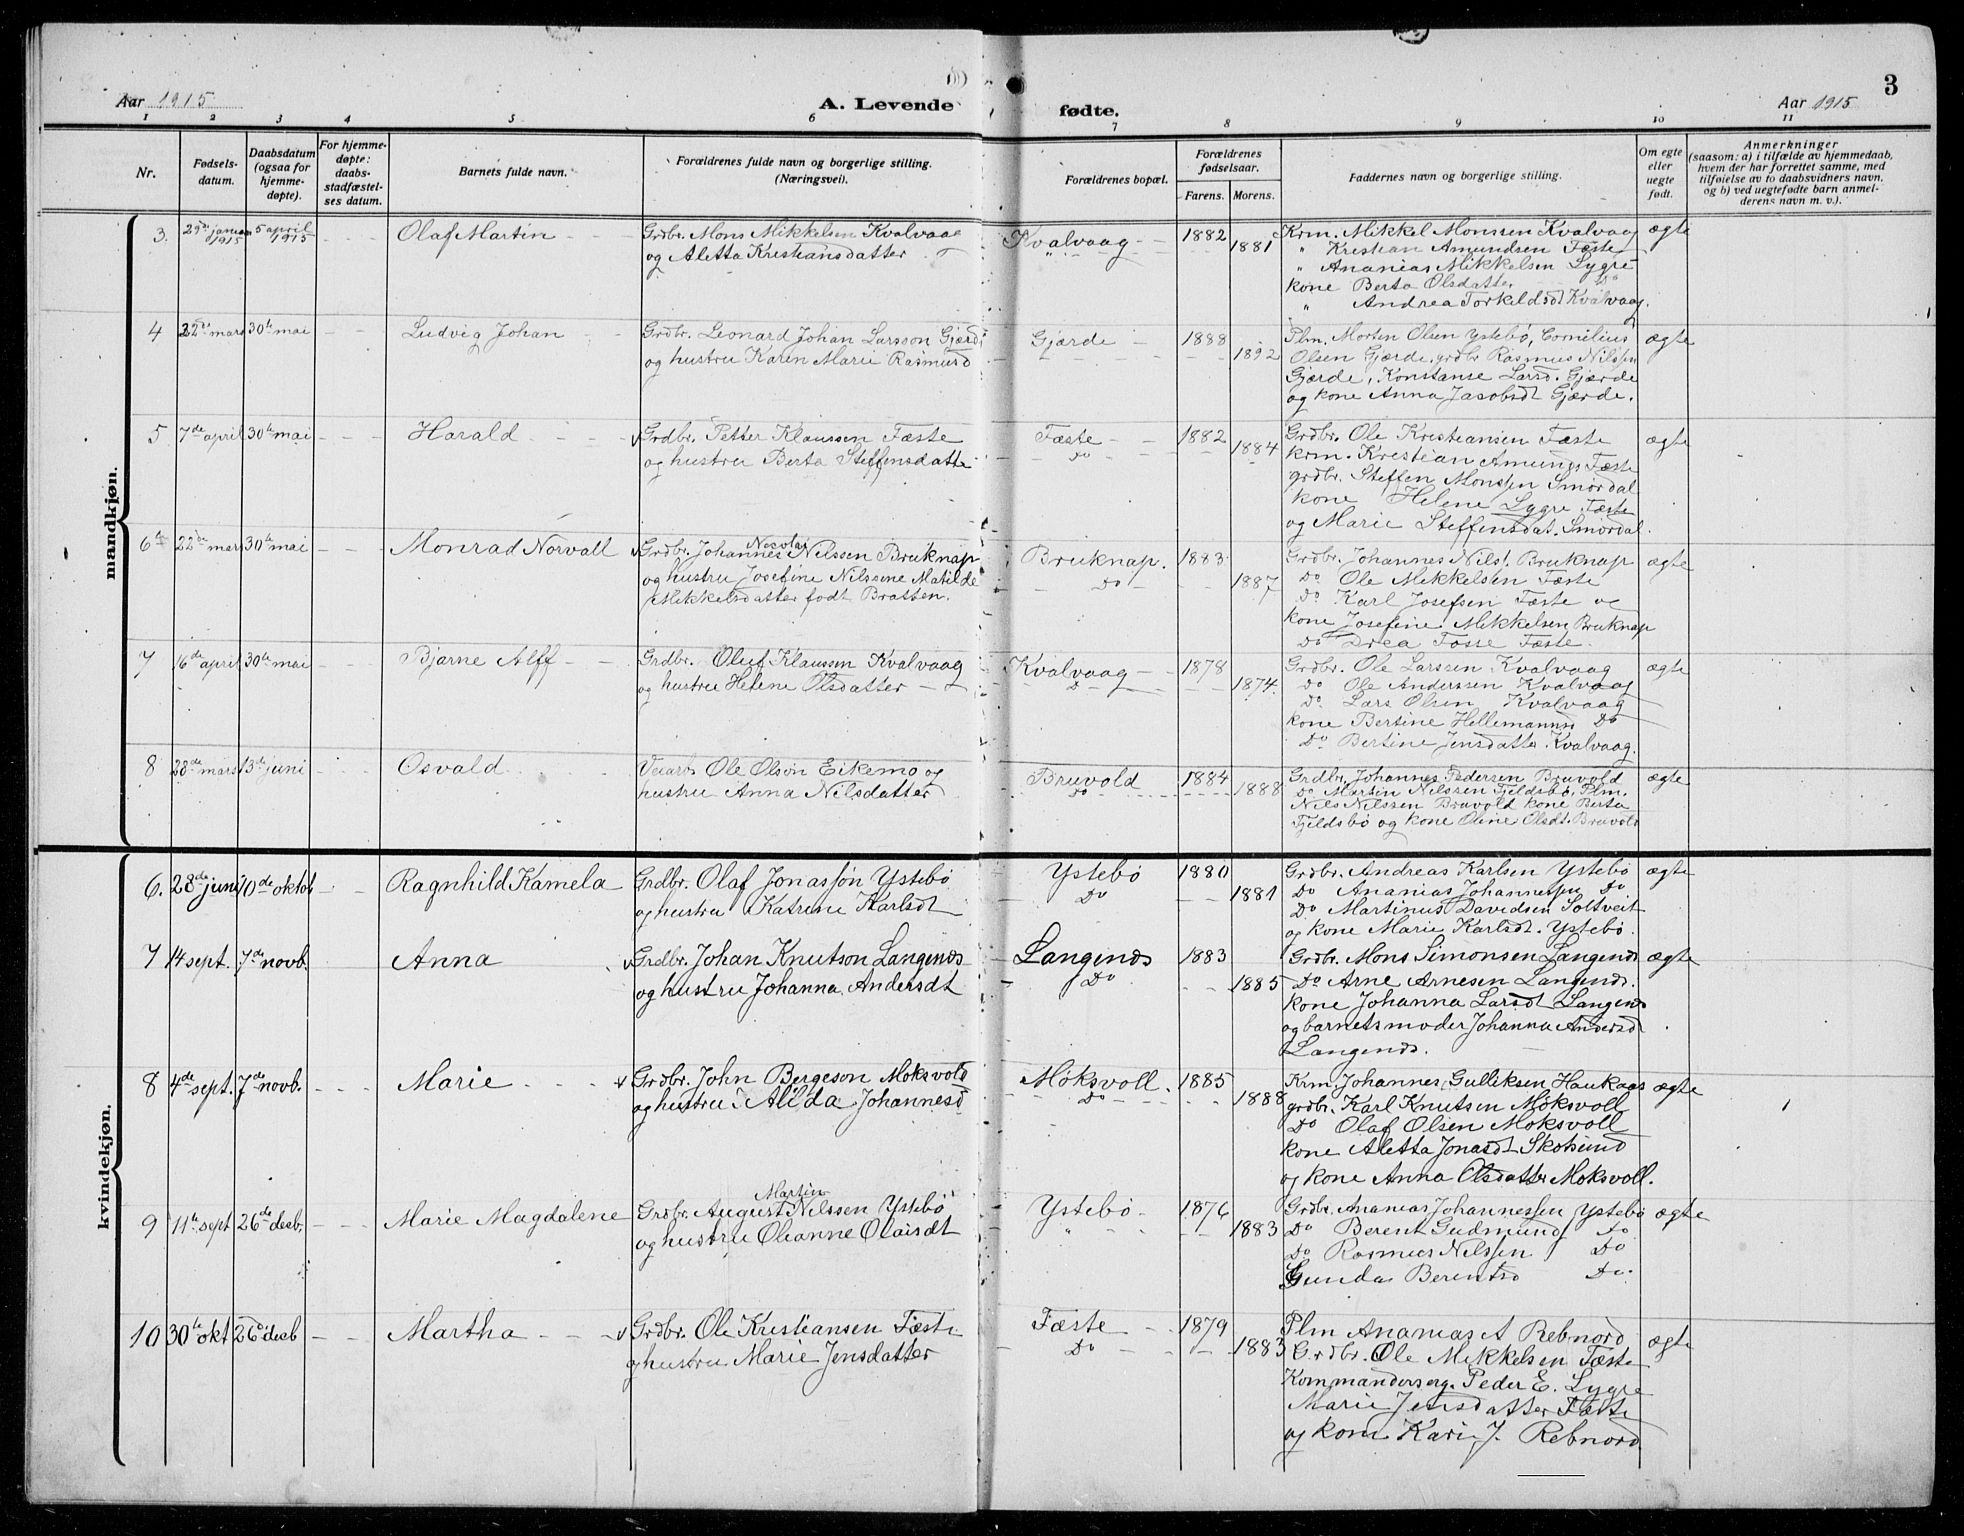 3
Aar 1915
A. Levende fødte.
Aar 1915
1 2 3 4 5 6 7 8 9 10 11
Nr.
Fødsels-
datum.
Daabsdatum
(ogsaa for
hjemme-
døpte).
For hjemme-
døpte:
daabs-
stadfæstel-
ses datum.
Barnets fulde navn.
Forældrenes fulde navn og borgerlige stilling.
(Næringsvei).
Forældrenes bopæl.
Forældrenes
fødselsaar.
Farens. Morens.
Faddernes navn og borgerlige stilling.
Om egte
eller
uegte
født.
Anmerkninger
(saasom: a) i tilfælde av hjemmedaab,
hvem der har forrettet samme, med
tilføielse av to daabsvidners navn,
og b) ved uegtefødte barn anmel-
derens navn m. v.).
mandkjøn.
3. 29de januar 1915 5 april 1915 Olaf Martin
Grdbr. Mons Mikkelsen Kvalvaag
og Aletta Kristiansdatter
Kvalvaag 1882 1881
Krm. Mikkel Monssen Kvalvaag ægte
" Kristian Amundsen Fæste
" Ananias Mikkelsen Lygre
kone Berta Olsdatter Do
" Andrea Torkildsdt Kvalvaag.
4 22de mars 30te mai Ludvig Johan
Grdbr. Leonard Johan Larsson Gjærde
og hustru Karen Marie Rasmusd
Gjærde 1888 1892
Plm. Morten Olsen Ystebö, Cornelius ægte
Olsen Gjærde, grdbr Rasmus Nilssen
Gjærde, Konstanse Larsd. Gjærde
og kone Anna Jacobsdt Gjærde.
5 7de april 30te mai Harald
Grdbr. Petter Klaussen Fæste
og hustru Berta Steffensdatter
Fæste Do 1882 1884
Grdbr. Ole Kristiansen Fæste ægte
krm. Kristian Amunds Fæste
grdbr. Steffen Monssen Smördal
kone Helene Lygre Fæste
og Marie Steffensdat. Smördal.
6 22de mars 30te mai Monrad Norvall
Grdbr. Johannes Nicolai Nilssen Bruknap
og hustru Josefine Nilssine Matilde
Mikkelsdatter födt Bratten.
Bruknap. Do 1883 1887
Grdbr. Johannes Nils. Bruknap ægte
Do Ole Mikkelsen Fæste
Do Karl Josefsen Fæste og
kone Josefine Mikkelsen Bruknap
Do Drea Fosse Fæste.
7 16de april 30te mai Bjarne Alff
Grdbr. Oluf Klaussen Kvalvaag
og hustru Helene Olsdatter
Kvalvaag Do 1878 1874.
Grdbr. Ole Larssen Kvalvaag ægte
Do Ole Anderssen Kvalvaag
Do Lars Olsen Kvalvaag
kone Bertine Hellemannsd Do
Do Bertine Jensdatter Kvalvaag.
8 28de mars 13de juni Osvald
Veiarb. Ole Olson Eikemo og
hustru Anna Nilsdatter
Bruvold Do 1884 1888
Grdbr. Johannes Pedersen Bruvold ægte
Do Martin Nilssen Fjeldsbö, Plm.
Nils Nilssen Bruvold kone Berta
Fjeldsbö og kone Oline Olsdt. Bruvold
kvindekjøn.
6. 28de juni 10de oktob Ragnhild Kamela
Grdbr. Olaf Jonassön Ystebö
og hustru Katrine Karlsdt
Ystebö Do 1880 1881
Grdbr. Andreas Karlsen Ystebö ægte
Do Ananias Johannessen Do
Do Martinus Davidsen Soltveit
og kone Marie Karlsdt. Ystebö.
7 14 sept. 7de novb. Anna
Grdbr. Johan Knutson Langenes
og hustru Johanna Andersdt
Langenes Do 1883 1885
Grdbr. Mons Simonsen Langenes ægte
Do Arne Arnesen Langenes.
kone Johanna Larsdt Langenes
og barnets moder Johanna Andersd
Langenes.
8 4de sept. 7de novb. Marie
Grdbr. John Bergeson Moksvold
og hustru Alida Johannesd
Moksvoll. Do 1885 1888
Krm Johannes Gulliksen Haukaas ægte
grdbr. Karl Knutsen Moksvoll
Do Olaf Olsen Moksvoll
kone Aletta Jonasdt Skotsund
og kone Anna Olsdatter Moksvoll.
9 11te sept 26de desb. Marie Magdalene
Grdbr. August Martin Nilssen Ystebö
og hustru Olianne Olaisdt
Ystebö 1876 1883
Grdbr. Ananias Johannessen Ystebö ægte
Do Berent Gudmund Do
Do Rasmus Nilssen Do
Gunda Berentsd Do.
10 30te okt 26de desb Martha
Grdbr. Ole Kristiansen Fæste
og hustru Marie Jensdatter
Fæste Do 1879 1883
Plm Ananias A Rebnord ægte
Grdbr. Ole Mikkelsen Fæste
Kommandersrg. Peder E. Lygre
Marie Jensdatter Fæste
og kone Kari J. Rebnord